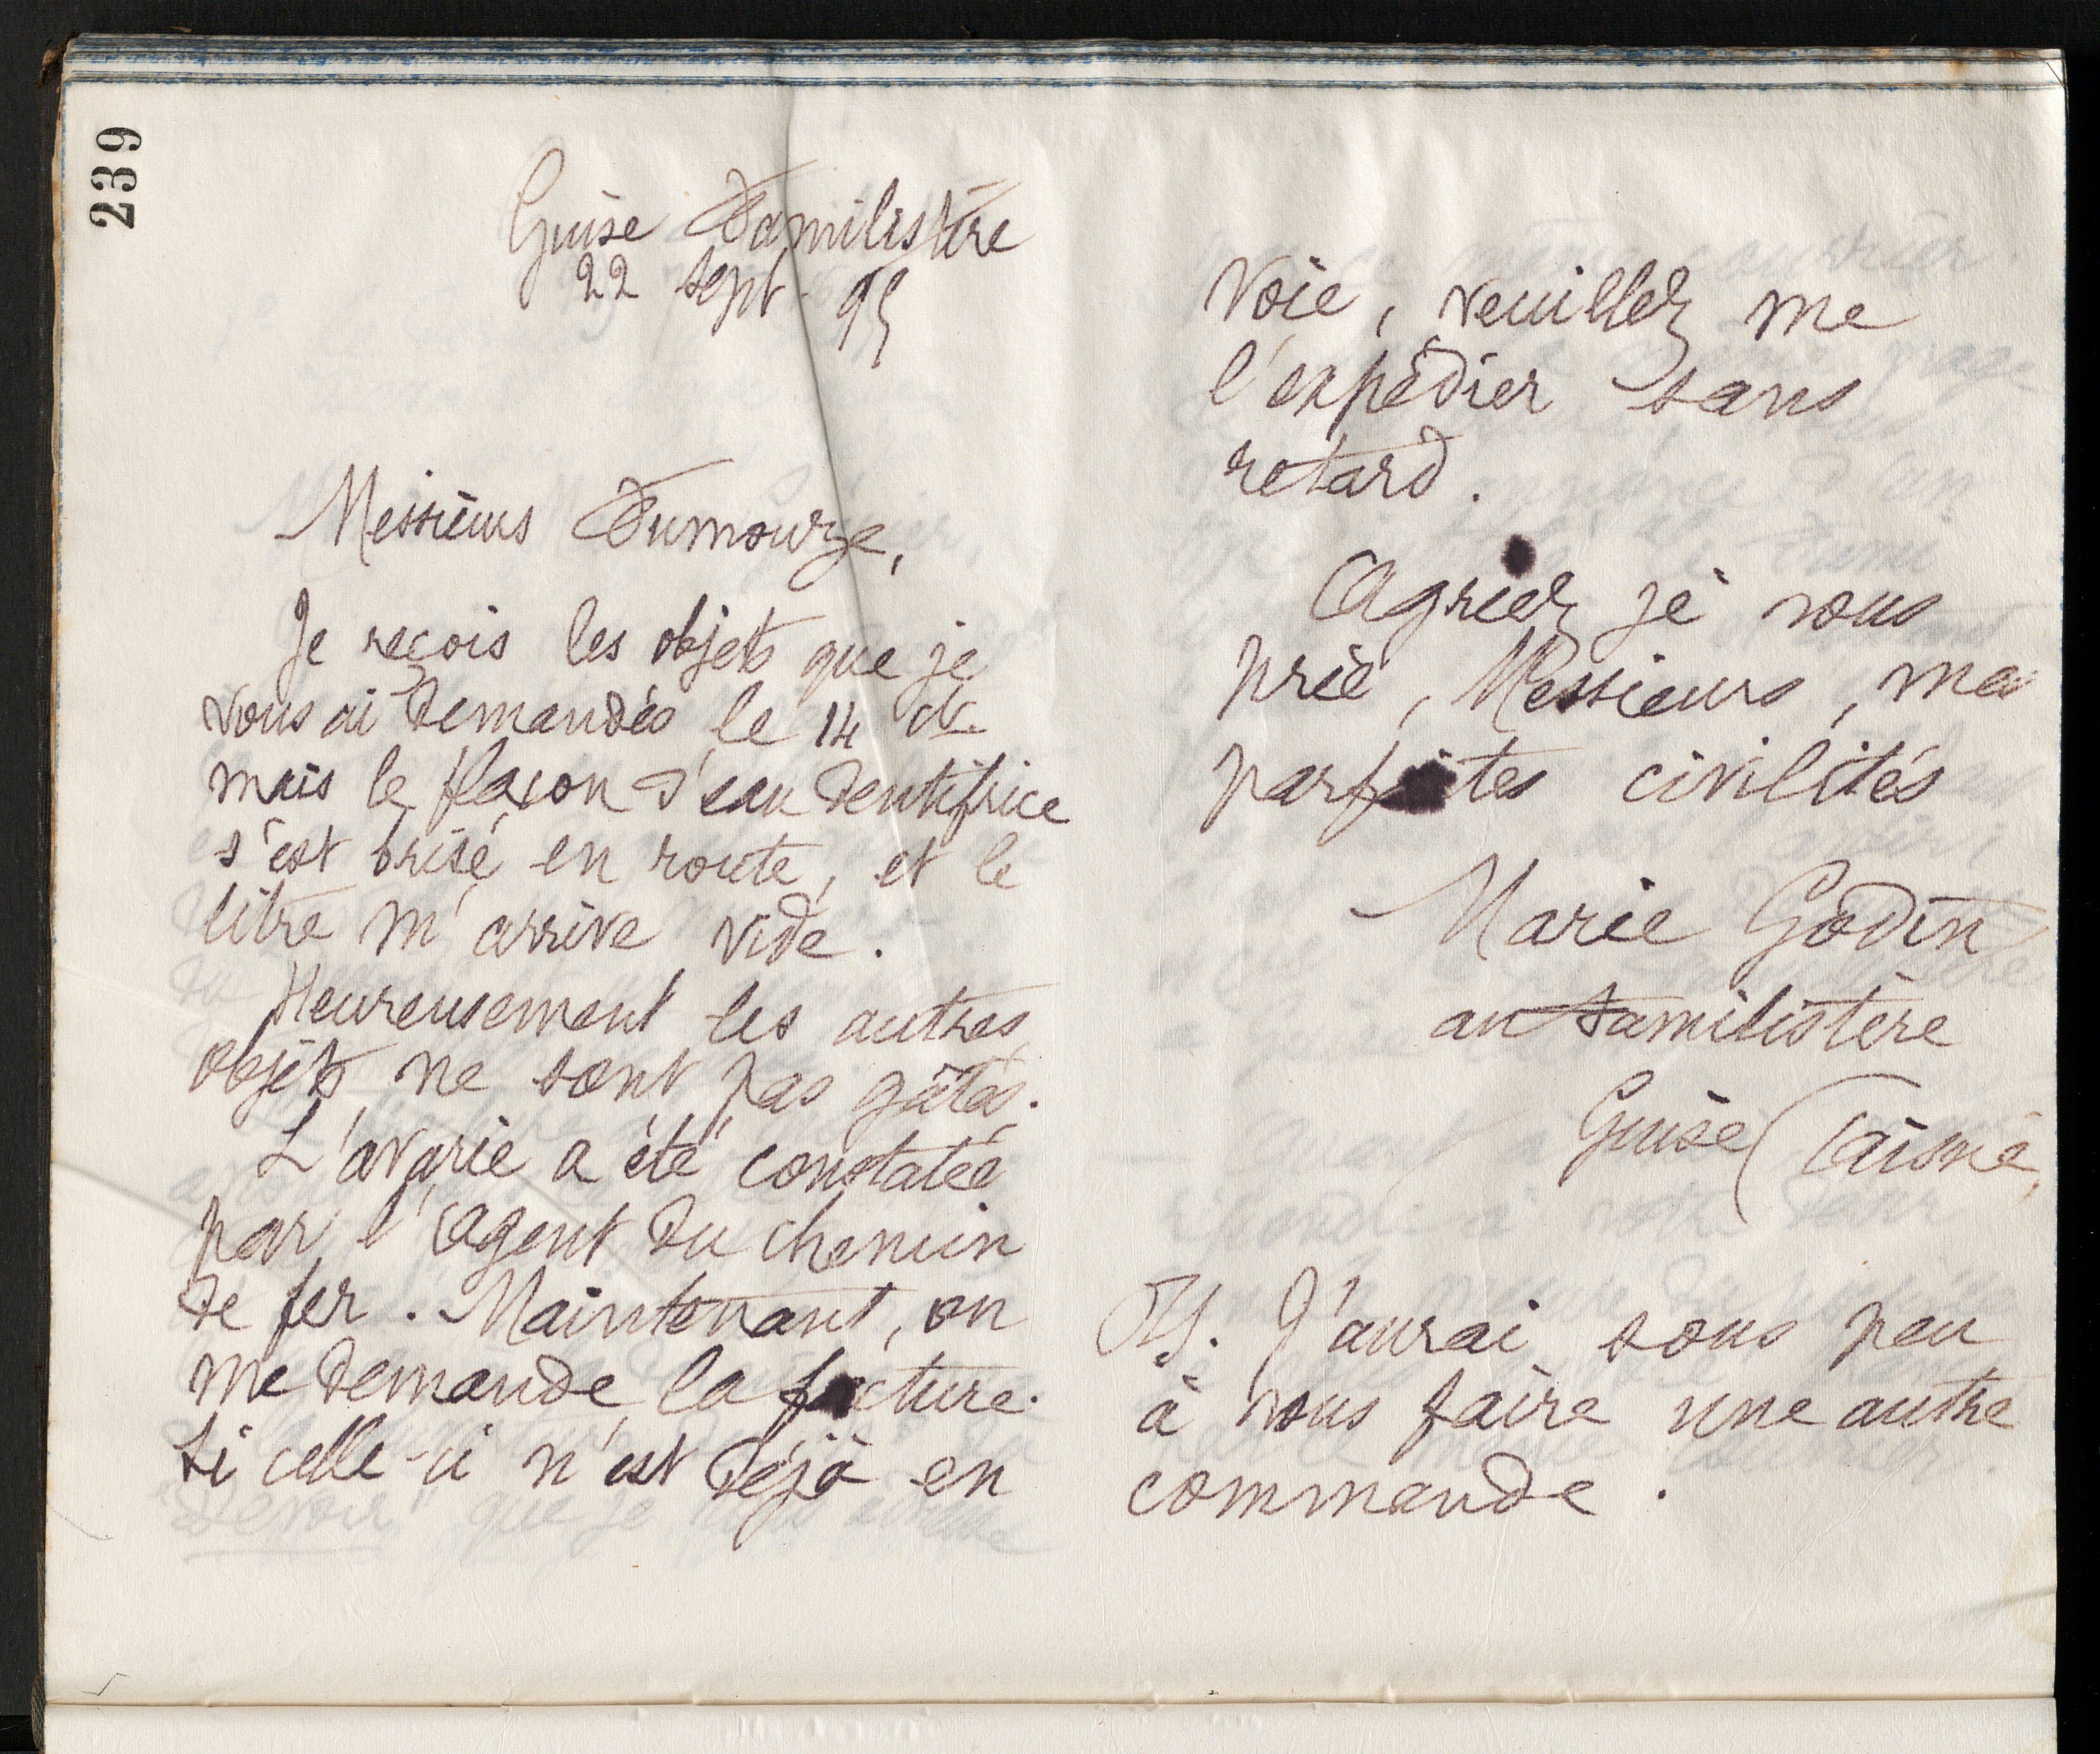 239
Guise Familistère
22 sept. 95
Messieurs Fumouze,
Je reçois les objets que je
vous ai demandés le 14 ct.
mais le flacon d'eau dentifrice
s'est brisé en route, et le
litre m'arrive vide.
Heureusement les autres
objets ne sont pas gâtés.
L'avarie a été constatée
par l'agent du chemin
de fer. Maintenant, on
me demande la facture.
Si celle-ci n'est déjà en
voie, veuillez me
l'expédier sans
retard.
Agréez je vous
prie, Messieurs, mes
parfaites civilités
Marie Godin
au Familistère
Guise (Aisne)
PS. J'aurai sous peu
à vous faire une autre
commande.